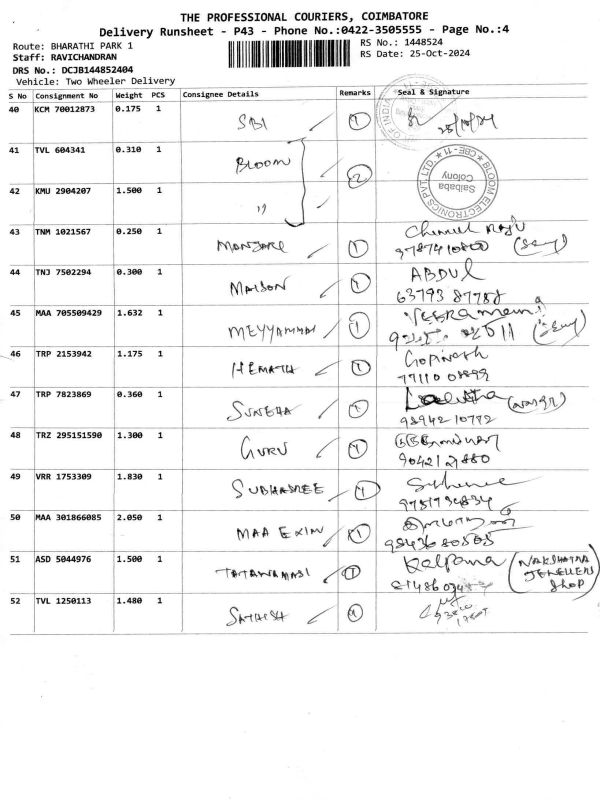 THE PROFESSIONAL COURIERS, COIMBATORE
Delivery Runsheet - P43 - Phone No.:0422-3505555 - Page No.:4
Route: BHARATHI PARK 1
RS No.: 1448524
Staff: RAVICHANDRAN
RS Date: 25-Oct-2024
DRS No.: DCJB144852404
Vehicle: Two Wheeler Delivery
S No Consignment No Weight PCS Consignee Details Remarks Seal & Signature
40 KCM 70012873 0.175 1 SBI 1 25/10/24
41 TVL 604341 0.310 1 BLOOM 2 BLOOM ELECTRONICS PVT. LTD. ★ CBE-11 ★ Saibaba Colony
42 KMU 2904207 1.500 1 "
43 TNM 1021567 0.250 1 1
44 TNJ 7502294 0.300 1 MAISON 1 ABDUL
63793 87788
45 MAA 705509429 1.632 1 MEYYAMMAI 1
46 TRP 2153942 1.175 1 HEMATH 1 Gopinath
47 TRP 7823869 0.360 1 SUNEHA 1
98942 10772
48 TRZ 295151590 1.300 1 GURU 1
90421 27880
49 VRR 1753309 1.830 1 SUBHASREE 1
50 MAA 301866085 2.050 1 MAA EXIM 1
51 ASD 5044976 1.500 1 1 Kalpana (NAKSHATRA JEWELLERS Shop)
52 TVL 1250113 1.480 1 SATHISH